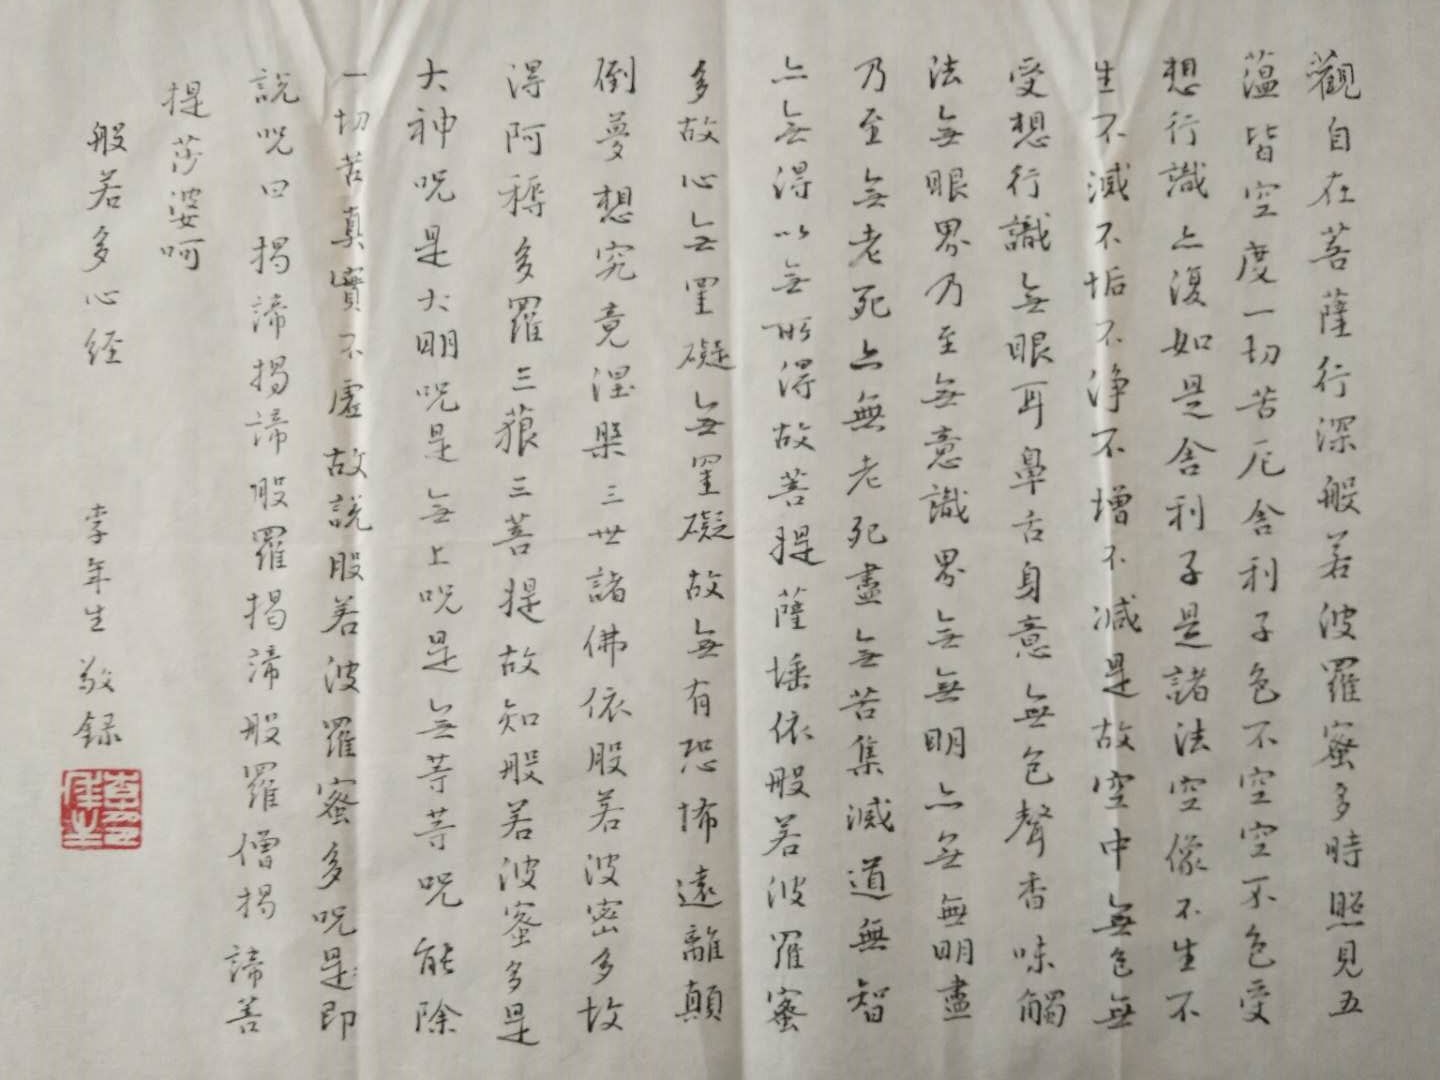 觀自在菩薩行深般若波羅蜜多時照見五
蘊皆空度一切苦厄舍利子色不空空不色受
想行識亦復如是舍利子是諸法空像不生不
生不滅不垢不淨不增不減是故空中無色無
受想行識無眼耳鼻舌身意無色聲香味觸
法無眼界乃至無意識界無無明亦無無明盡
乃至無老死亦無老死盡無苦集滅道無智
亦無得以無所得故菩提薩埵依般若波羅蜜
多故心無罣礙無罣礙故無有恐怖遠離顛
倒夢想究竟涅槃三世諸佛依般若波密多故
得阿耨多羅三藐三菩提故知般若波蜜多是
大神呪是大明呪是無上呪是無等等呪能除
一切苦真實不虛故說般若波羅蜜多呪是即
說呪曰揭諦揭諦般羅揭諦般羅僧揭諦菩
提莎婆呵
般若多心経
李年生敬録